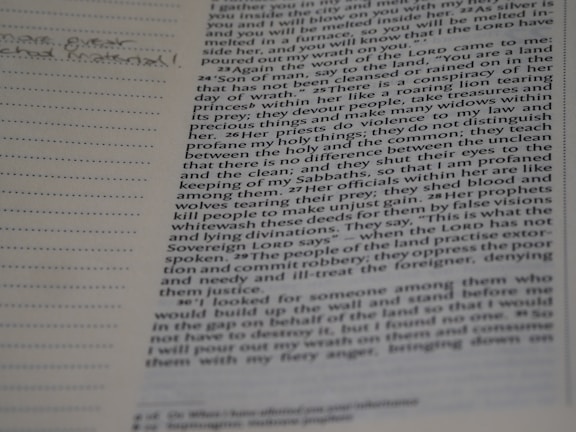 I gather you in my anger and my
you inside the city and melt you.
you and I will blow on you with my fiery
and you will be melted inside her. 22 As silver is
melted in a furnace, so you will be melted in-
side her, and you will know that I the LORD have
poured out my wrath on you.'"
23 Again the word of the LORD came to me:
24 'Son of man, say to the land, "You are a land
that has not been cleansed or rained on in the
day of wrath." 25 There is a conspiracy of her
princes b within her like a roaring lion tearing
its prey; they devour people, take treasures and
precious things and make many widows within
her. 26 Her priests do violence to my law and
profane my holy things; they do not distinguish
between the holy and the common; they teach
that there is no difference between the unclean
and the clean; and they shut their eyes to the
keeping of my Sabbaths, so that I am profaned
among them. 27 Her officials within her are like
wolves tearing their prey; they shed blood and
kill people to make unjust gain. 28 Her prophets
whitewash these deeds for them by false visions
and lying divinations. They say, "This is what the
Sovereign LORD says" – when the LORD has not
spoken. 29 The people of the land practise extor-
tion and commit robbery; they oppress the poor
and needy and ill-treat the foreigner, denying
them justice.
30 'I looked for someone among them who
would build up the wall and stand before me
in the gap on behalf of the land so that I would
not have to destroy it, but I found no one. 31 So
I will pour out my wrath on them and consume
them with my fiery anger, bringing down on